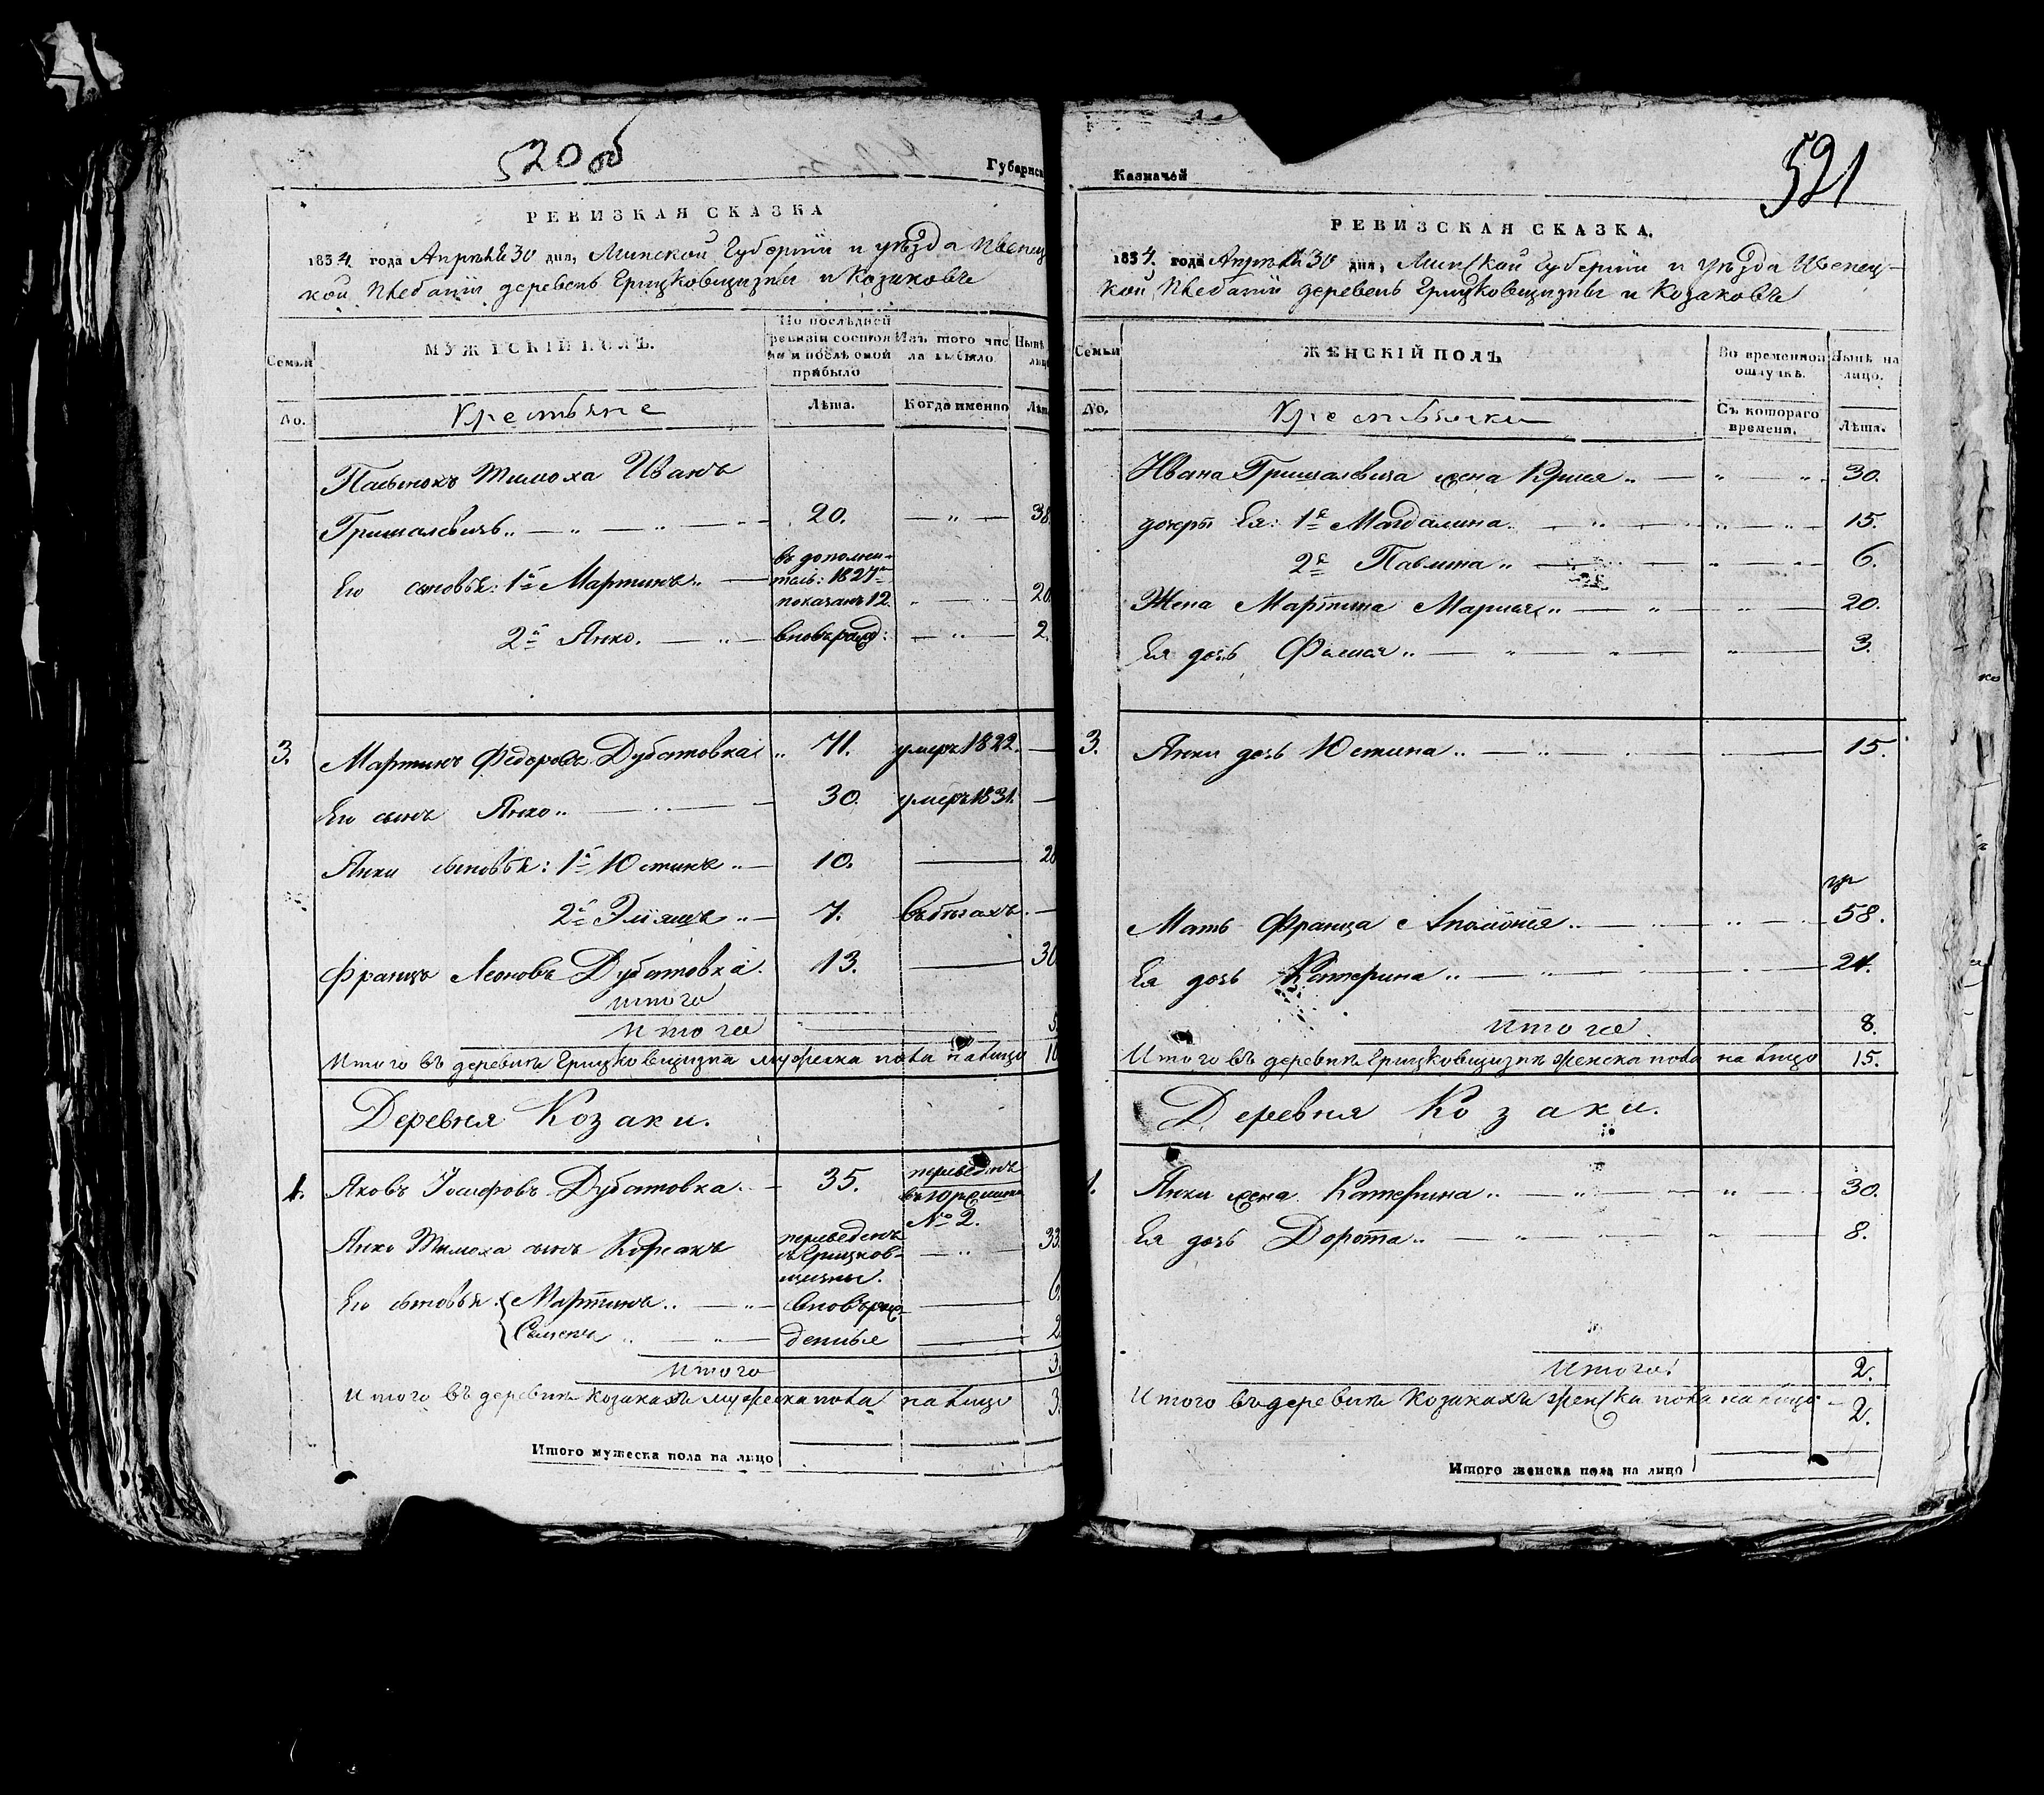 520 об
Губернск
РЕВИЗКАЯ СКАЗКА
1834 года Апрѣля 30 дня, Минской Губерніи и уѣзда Ивенец
кой Плебаніи деревень Грицковщизны и Козаковъ
Семьи
МУЖЕСКІЙ ПОЛЪ.
По послѣдней ревизіи состояло и послѣ оной прибыло
Изъ того числа выбыло
Нынѣ лицо
No.
Крестьяне
Лѣта.
Когда именно
Лѣта
Пасынокъ Тимоха Иванъ
Гришалевичъ „ — „ — „ — 20. — „ — 38.
Его сыновья: 1й Мартинъ „ — въ дополни-
тель: 1827го
показанъ 12. „ — „ — 20.
2й Янко. — „ — вновьрожд: — „ — 2.
3. Мартинъ Федоровъ Дубатовка „ 71. умеръ 1822. —
Его сынъ Янко „ — „ — 30. умеръ 1831. —
Янки сыновья: 1й Юстинъ „ — 10. — 26
2й Эліяшъ „ — 7. въ бѣгахъ. —
Францъ Леоновъ Дубатовка. 13. — 30
итого
Итого 5.
Итого въ деревнѣ Грицковщизнѣ мужеска пола на лицо 10
Деревня Козаки.
1. Яковъ Іосифовъ Дубатовка. — 35. переведенъ
№ 2.
Янко Тимоха сынъ Корсакъ переведенъ — „ — 33.
съ Грицков-
щизны.
Его сыновья: Мартинъ „ — „ — вновьрож- — 6.
Семенъ „ — „ — денные — 2
Итого 3.
Итого въ деревнѣ Козакахъ мужеска пола на лицо 3.
Итого мужеска пола на лицо
Казначей
521
РЕВИЗСКАЯ СКАЗКА.
1834 года Апрѣля 30 дня, Минской Губерніи и уѣзда Ивенец-
кой Плебаніи деревень Грицковщизны и Козаковъ
Семьи
ЖЕНСКІЙ ПОЛЪ
Во временной отлучкѣ.
Нынѣ на лицо.
No.
Крестьянки
Съ котораго времени.
Лѣта.
Ивана Гришалевича жена Круся „ — „ — „ 30.
дочери Ея: 1я Магдалина. — „ — „ — 15.
2я Павлина „ — „ — „ — 6.
Жена Мартина Марыя „ — „ — „ — 20.
Ея дочь — „ — „ — „ — 3.
3. Янки дочь Юстина „ — „ — 15.
Мать Франца Аполонія „ — „ — „ — 58.
Ея дочь Катерина „ — „ — 21.
Итого 8.
Итого въ деревнѣ Грицковщизнѣ женска пола на лицо 15.
Деревня Козаки.
1. Янки жена Катерина „ — „ — „ — 30.
Ея дочь Дорота „ — „ — „ — 8.
Итого: 2.
Итого въ деревнѣ Козакахъ женска пола на лицо 2.
Итого женска пола на лицо